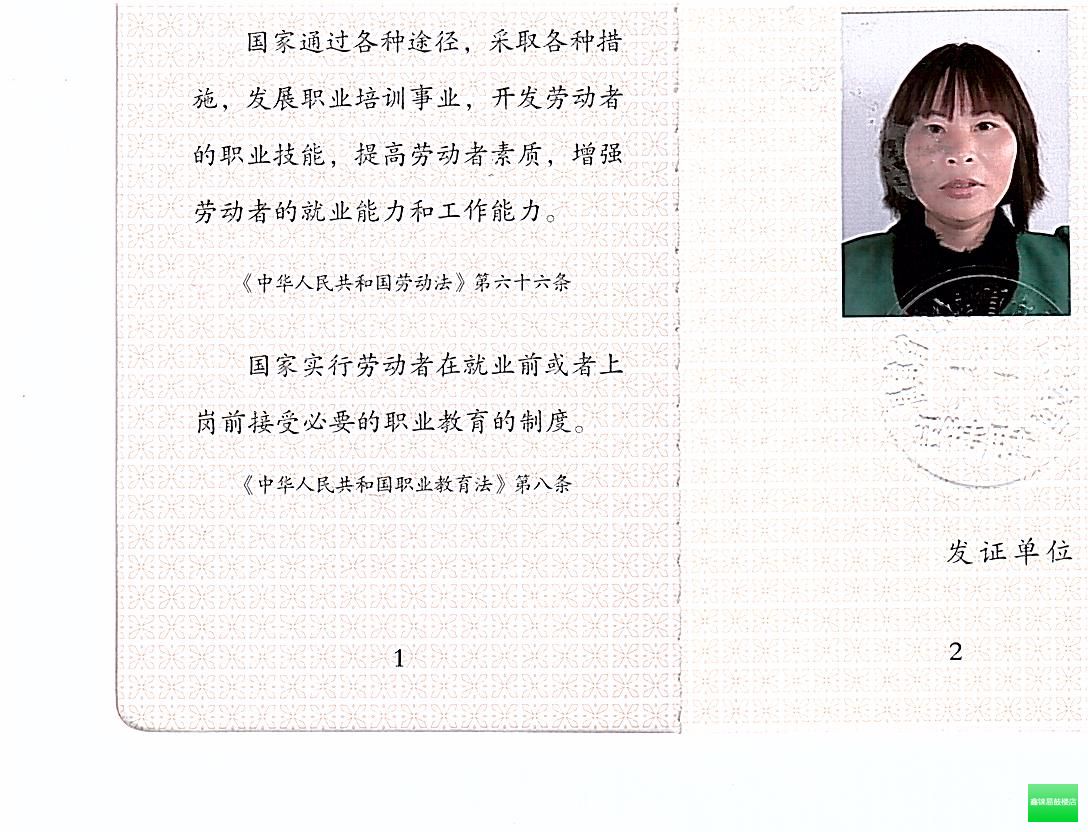 国家通过各种途径，采取各种措
施，发展职业培训事业，开发劳动者
的职业技能，提高劳动者素质，增强
劳动者的就业能力和工作能力。
《中华人民共和国劳动法》第六十六条
国家实行劳动者在就业前或者上
岗前接受必要的职业教育的制度。
《中华人民共和国职业教育法》第八条
1
发证单位
2